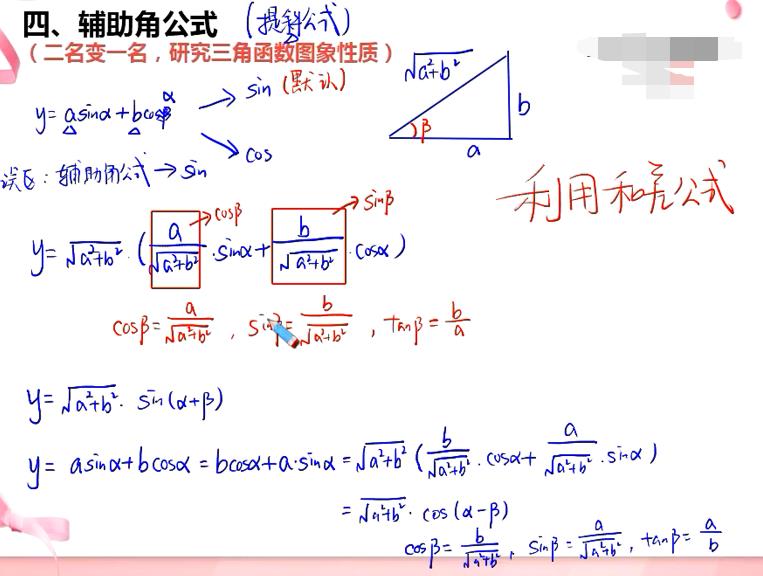 四、辅助角公式 (提斜公式)
(二名变一名，研究三角函数图象性质)
y = asinα + bcosα → sin (默认)
→ cos
√a²+b²
b
β
a
误区：辅助角公式 → sin
利用和差公式
y = √a²+b² · ( a/√a²+b² · sinα + b/√a²+b² · cosα )
→ cosβ → sinβ
cosβ = a/√a²+b² , sinβ = b/√a²+b² , tanβ = b/a
y = √a²+b² · sin(α+β)
y = asinα + bcosα = bcosα + a·sinα = √a²+b² ( b/√a²+b² · cosα + a/√a²+b² · sinα )
= √a²+b² · cos(α-β)
cosβ = b/√a²+b² , sinβ = a/√a²+b² , tanβ = a/b